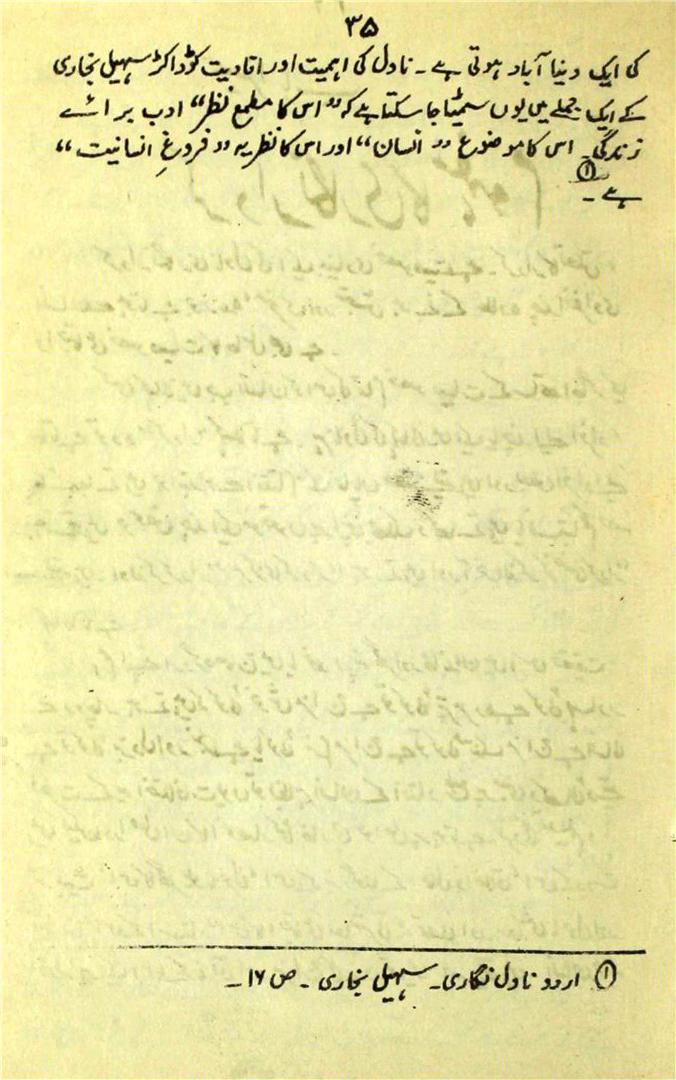 ۳۵
کی ایک دنیا آباد ہوتی ہے۔ ناول کی اہمیت اور افادیت کو ڈاکڑ سہیل بخاری
کے ایک جملے میں یوں سمیٹا جا سکتا ہے کہ "اس کا مطمع نظر" ادب برائے
زندگی۔ اس کا موضوع "انسان" اور اس کا نظریہ "فروغِ انسانیت"
ہے۔ ①
① اردو ناول نگاری۔ سہیل بخاری ۔ ص ۱۶۔